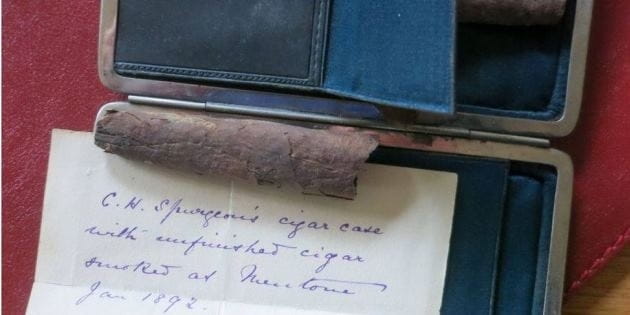 C. H. Spurgeon's cigar case
with unfinished cigar
smoked at Mentone
Jan 1892.